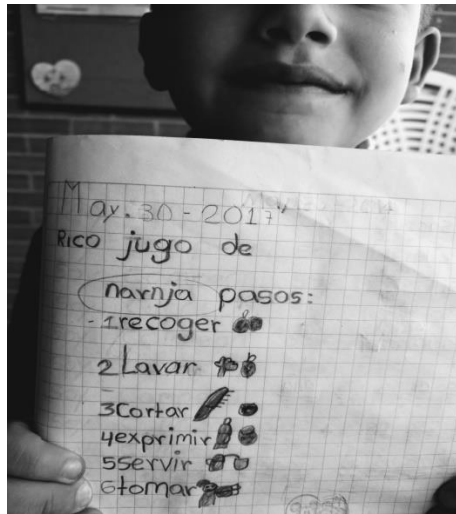 May. 30 - 2017
RICO jugo de
narnja pasos:
- 1recoger
2 Lavar
3Cortar
4exprimir
5servir
6tomar